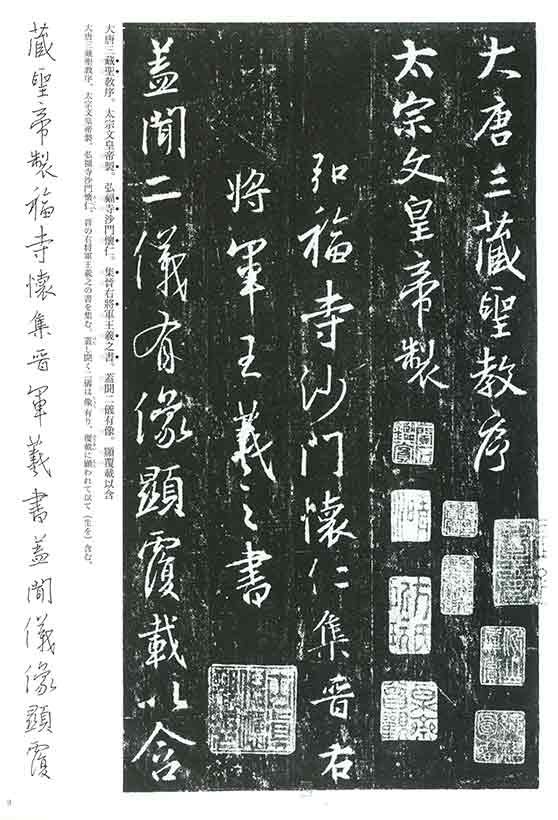 大唐三藏聖教序
太宗文皇帝製
弘福寺沙門懷仁集晉右
將軍王羲之書
蓋聞二儀有像顯覆載以含
大唐三藏聖教序。太宗文皇帝製。弘福寺沙門懷仁。集晉右將軍王羲之書。蓋聞二儀有像。顯覆載以含
大唐三蔵聖教序。太宗文皇帝製。弘福寺沙門懐仁。晋の右将軍王羲之の書を集む。蓋し聞く二儀は像有り、覆載に顕われて以て（生を）含む。
藏聖帝製福寺懷集晉軍羲書蓋聞儀像顯覆